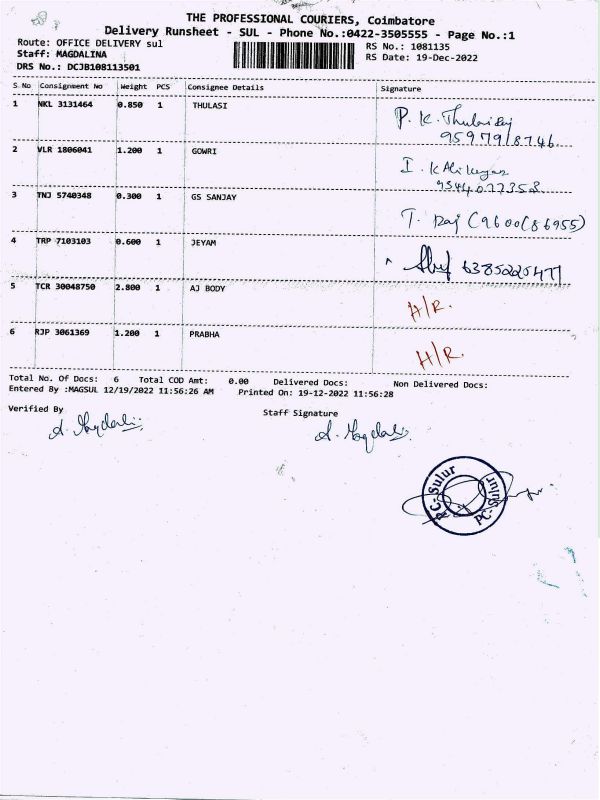 THE PROFESSIONAL COURIERS, Coimbatore
Delivery Runsheet - SUL - Phone No.:0422-3505555 - Page No.:1
Route: OFFICE DELIVERY sul
RS No.: 1081135
Staff: MAGDALINA
RS Date: 19-Dec-2022
DRS No.: DCJB108113501
S No Consignment No Weight PCS Consignee Details Signature
1 NKL 3131464 0.850 1 THULASI P. K. Thulasi
2 VLR 1806041 1.200 1 GOWRI I.
3 TNJ 5740348 0.300 1 GS SANJAY T. Raj (9600(86955)
4 TRP 7103103 0.600 1 JEYAM 6385222547
5 TCR 30048750 2.800 1 AJ BODY H/R.
6 RJP 3061369 1.200 1 PRABHA H/R.
Total No. Of Docs: 6 Total COD Amt: 0.00 Delivered Docs: Non Delivered Docs:
Entered By :MAGSUL 12/19/2022 11:56:26 AM Printed On: 19-12-2022 11:56:28
Verified By Staff Signature
PC-Sulur
PC-Sulur